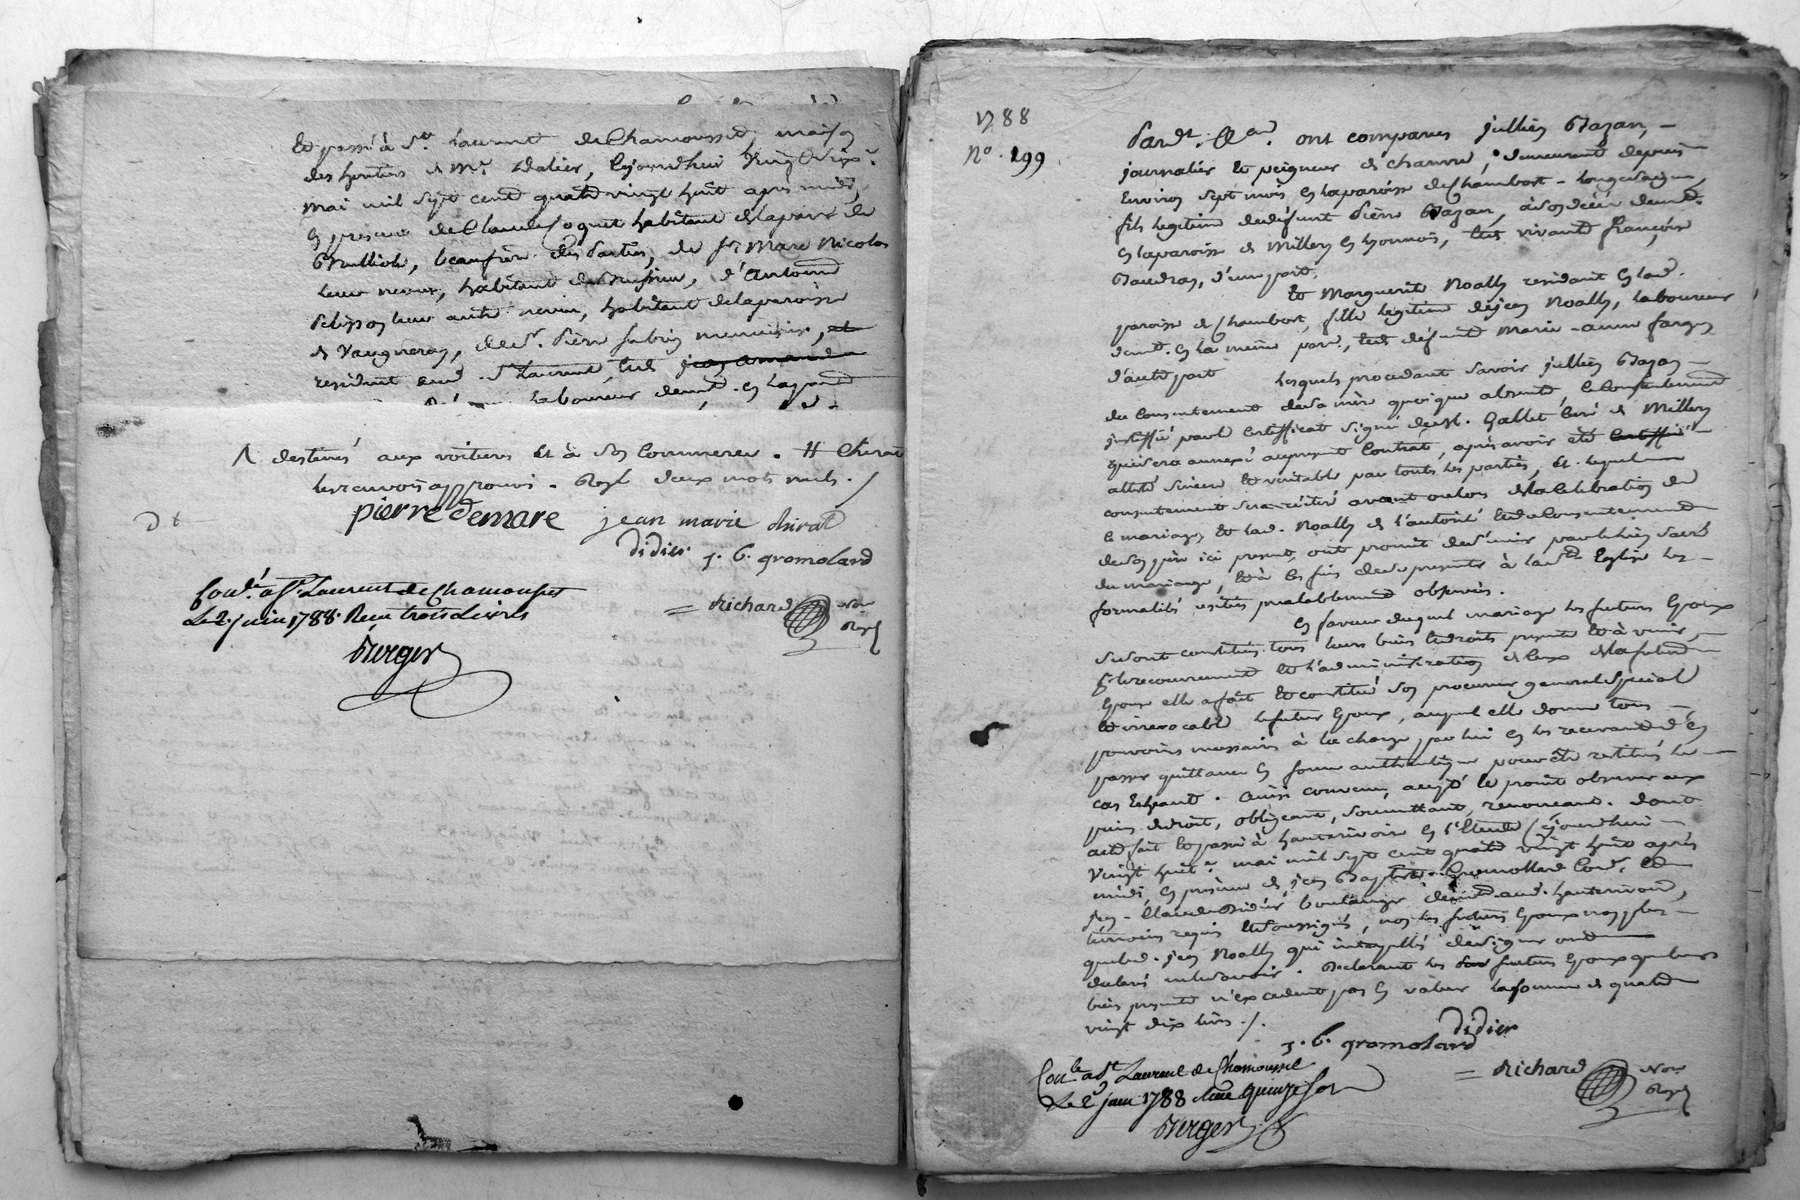 Et passé à St. Laurent de Chamousset maison
des heritiers de Mr. Dalier, cejourdhui vingt dix
mai mil sept cent quatre vingt huit apres midy,
en présence de Claude habitant de la paroisse de
Brulliole, beaufrère des parties, de Sr. Marc Nicolas
leur neveu, habitant de Brussieu, d'Antoine
Pelisson leur autre neveu, habitant de la paroisse
de Vaugneray, de Sr. Pierre menuisier, et
residant aud. St. Laurent, tous
laboureur demt. en la parr
destinés aux voitures et à son commerce. H Chirat
les renvois approuvés. Rayé deux mots nuls. /
pierre Demare jean marie chirat
Didier j. b. gromolard
Conlé. a St. Laurent de Chamousset
Le 2. juin 1788. Reçu trois Livres
richard Nore. Royl
Berger
1788
No. 199
Pardt. ont comparus jullien Bazan,
journalier et peigneur de chanvre, demeurant depuis
environ sept mois en la paroisse de Chambost-longesaigne,
fils legitime de defunt Pierre Bazan, à son décès demt.
en la paroisse de Millery en Lyonnois, et de vivante françoise
Baudras, d'une part.
Et Marguerite Noally residant en lad.
paroisse de Chambost, fille legitime de jean Noally, laboureur
demt. en la meme parr., et de defunte Marie-anne farges
d'autre part Lesquels procedant savoir jullien Bazan
du consentement de sa mère quoique absente, le consentement
justiffié par le certifficat signé de M. Gallet curé de Millery
qui sera annexé au present contrat, après avoir été certiffié
attesté sincere et veritable par toutes les parties, et lequel
consentement sera réitéré avant ou lors de la celebration du
le mariage, et lad. Noally de l'autorité et du consentement
de son père ici present, ont promit de s'unir par le lien sacré
du mariage, et à ces fins de se presenter à la ste. Eglise les
formalités usitées prealablement observées.
En faveur duquel mariage les futurs Epoux
se sont constitués tous leurs biens et droits presents et à venir,
pr. le recouvrement et l'administration de ceux de la future
Epouse elle a fait et constitué son procureur general special
et irrevocable le futur Epoux, auquel elle donne tous
pouvoirs necessaires à la charge par lui en les recevant d'en
passer quittance en forme authentique pour etre restitués le
cas échéant. Ainsi convenu, accepté et promit observer aux
peines de droit, obligeant, soumettant, renonceant. Dont
acte fait et passé à hauterivoire en l'Etude cejourdhui
vingt huit mai mil sept cent quatre vingt huit après
midi, en présence de jean Baptiste Gromollard Cordr. et de
jean-Claude Didier boulanger demt. aud. hauterivoire,
témoins requis et soussignés, non les futurs Epoux non plus
que led. jean Noally qui interpellés de signer ont
declaré ne le savoir. Declarant les futurs Epoux que leurs
biens presents n'excedent pas en valeur la somme de quatre
vingt dix livres. /.
Didier
j. b. gromolard
Conlé a St Laurent de Chamousset
Le 2 juin 1788 Reçu quinze sols
richard Nore. Royl
Berger